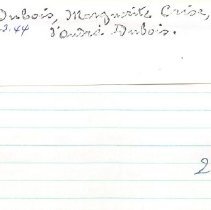 Dubois, Marguerite Crise,
3.44 André Dubois.
2